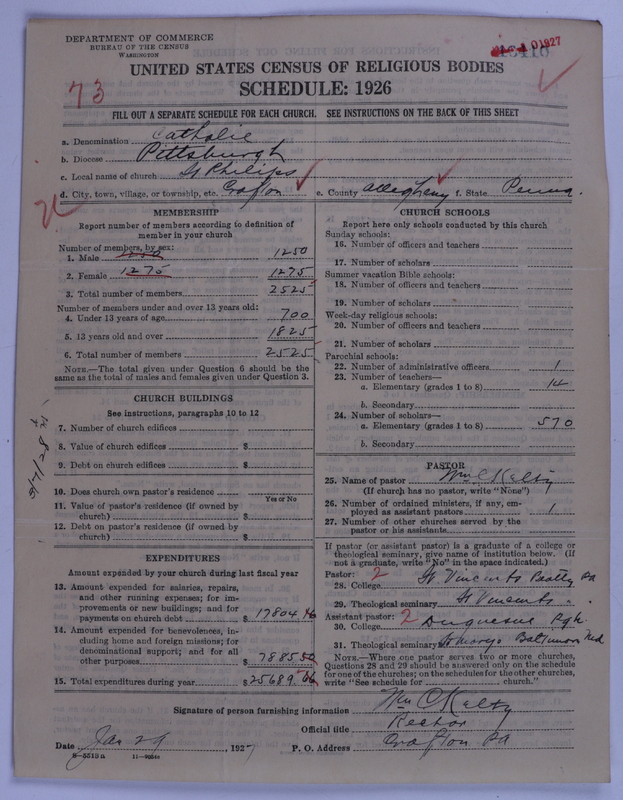 DEPARTMENT OF COMMERCE
BUREAU OF THE CENSUS
WASHINGTON
UNITED STATES CENSUS OF RELIGIOUS BODIES
SCHEDULE: 1926
73
FILL OUT A SEPARATE SCHEDULE FOR EACH CHURCH. SEE INSTRUCTIONS ON THE BACK OF THIS SHEET
a. Denomination Catholic
b. Diocese Pittsburgh
c. Local name of church St Philips
d. City, town, village, or township, etc. Crafton e. County Allegheny f. State Penna.
MEMBERSHIP
Report number of members according to definition of
member in your church
Number of members, by sex:
1. Male 1250 1250
2. Female 1275 1275
3. Total number of members 2525
Number of members under and over 13 years old:
4. Under 13 years of age 700
5. 13 years old and over 1825
6. Total number of members 2525
NOTE.—The total given under Question 6 should be the
same as the total of males and females given under Question 3.
CHURCH BUILDINGS
See instructions, paragraphs 10 to 12
7. Number of church edifices
8. Value of church edifices $
9. Debt on church edifices $
10. Does church own pastor's residence
Yes or No
11. Value of pastor's residence (if owned by
church) $
12. Debt on pastor's residence (if owned by
church) $
EXPENDITURES
Amount expended by your church during last fiscal year
13. Amount expended for salaries, repairs,
and other running expenses; for im-
provements or new buildings; and for
payments on church debt $ 17804.16
14. Amount expended for benevolences, in-
cluding home and foreign missions; for
denominational support; and for all
other purposes 7885.50
15. Total expenditures during year $ 25689.66
CHURCH SCHOOLS
Report here only schools conducted by this church
Sunday schools:
16. Number of officers and teachers
17. Number of scholars
Summer vacation Bible schools:
18. Number of officers and teachers
19. Number of scholars
Week-day religious schools:
20. Number of officers and teachers
21. Number of scholars
Parochial schools:
22. Number of administrative officers 1
23. Number of teachers—
a. Elementary (grades 1 to 8) 14
b. Secondary
24. Number of scholars—
a. Elementary (grades 1 to 8) 570
b. Secondary
PASTOR
25. Name of pastor Wm C Kelty
(If church has no pastor, write "None")
26. Number of ordained ministers, if any, em-
ployed as assistant pastors 1
27. Number of other churches served by the
pastor or his assistants
If pastor (or assistant pastor) is a graduate of a college or
theological seminary, give name of institution below. (If
not a graduate, write "No" in the space indicated.)
Pastor: 2
28. College St Vincents Beatty Pa
29. Theological seminary St Vincents
Assistant pastor: 2
30. College Duquesne Pgh
31. Theological seminary St Marys Baltimore Md
NOTE.—Where one pastor serves two or more churches,
Questions 28 and 29 should be answered only on the schedule
for one of the churches; on the schedules for the other churches,
write "See schedule for church."
Signature of person furnishing information Wm C Kelty
Official title Rector
Date Jan 29 1927 P. O. Address Crafton Pa
8-5513a